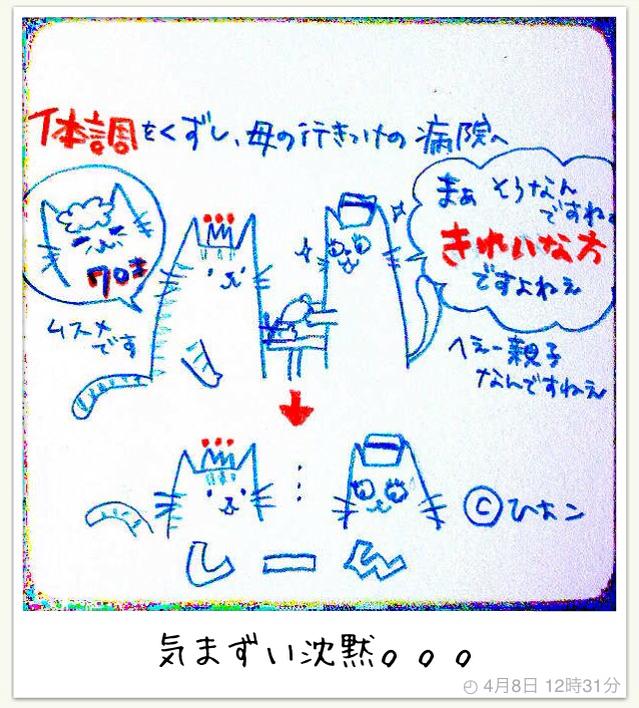 体調をくずし、母の行きつけの病院へ
70才
ムスメ
です
まぁ そうなん
ですね
きれいな方
ですよねぇ
へぇー親子
なんですねぇ
⋮
しーん
©ひオン
気まずい沈黙。。。
4月8日 12時31分